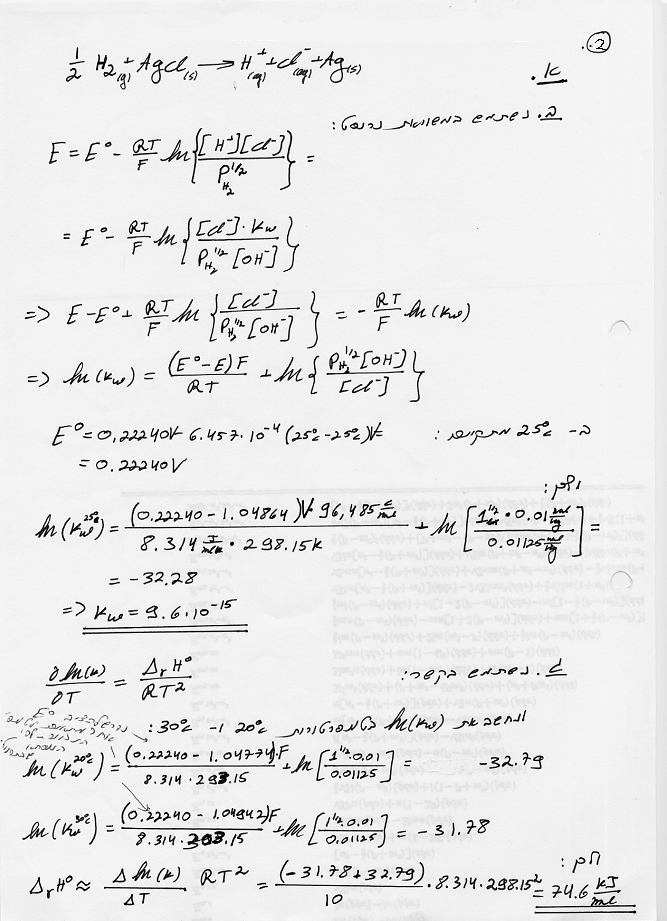 .2
.א
½ H₂(g) + AgCl(s) → H⁺(aq) + Cl⁻(aq) + Ag(s)
ב. נשתמש במשוואת נרנסט:
E = E° - RT/F ln{[H⁺][Cl⁻]/P_H₂^1/2} =
= E° - RT/F ln{[Cl⁻]·Kw/P_H₂^1/2 [OH⁻]}
=> E - E° + RT/F ln{[Cl⁻]/P_H₂^1/2 [OH⁻]} = - RT/F ln(Kw)
=> ln(Kw) = (E° - E)F/RT + ln{P_H₂^1/2 [OH⁻]/[Cl⁻]}
ב- 25°c מתקיים:
E° = 0.22240V - 6.457·10⁻⁴ (25°c - 25°c)V =
= 0.22240V
ולכן:
ln(Kw^25°c) = (0.22240 - 1.04864)V · 96,485 c/mol / 8.314 J/molK · 298.15K + ln[1^1/2 · 0.01 mol/kg / 0.01125 mol/kg] =
= -32.28
=> Kw = 9.6·10⁻¹⁵
ג. נשתמש בקשר:
∂ln(K)/∂T = ΔrH°/RT²
ונחשב את ln(Kw) בטמפרטורות 20°c ו- 30°c:
E°
ln(Kw^20°c) = (0.22240 - 1.04774)·F / 8.314·293.15 + ln[1^1/2·0.01/0.01125] = -32.79
ln(Kw^30°c) = (0.22240 - 1.04942)F / 8.314·303.15 + ln[1^1/2·0.01/0.01125] = -31.78
ולכן:
ΔrH° ≈ Δln(K)/ΔT RT² = (-31.78+32.79)/10 · 8.314·298.15² = 74.6 kJ/mol